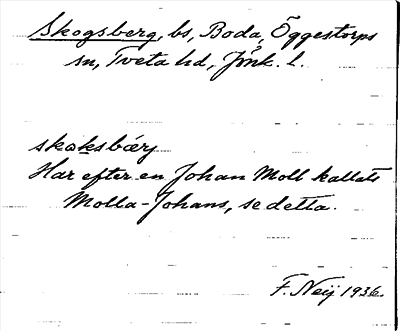 Skogsberg, bs, Boda, Öggestorps
sn, Tveta hd, Jönk. l.
skoksbärj
Har efter en Johan Moll kallats
Molla-Johans, se detta.
F. Neij 1936.